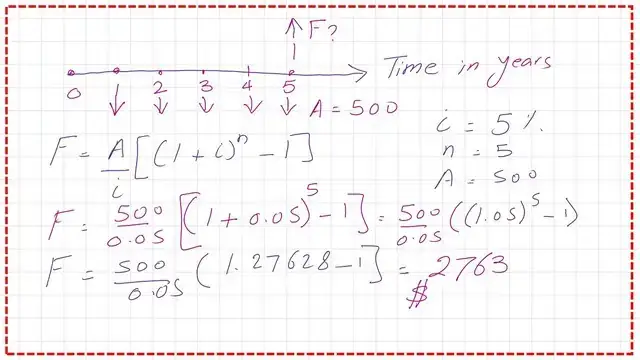 F?
Time in years
0 2 3 4 5
A = 500
i = 5 %.
n = 5
A = 500
F = A/i [(1 + i)^n - 1]
F = 500/0.05 [(1 + 0.05)^5 - 1] = 500/0.05 ((1.05)^5 - 1)
F = 500/0.05 (1.27628 - 1] = $ 2763